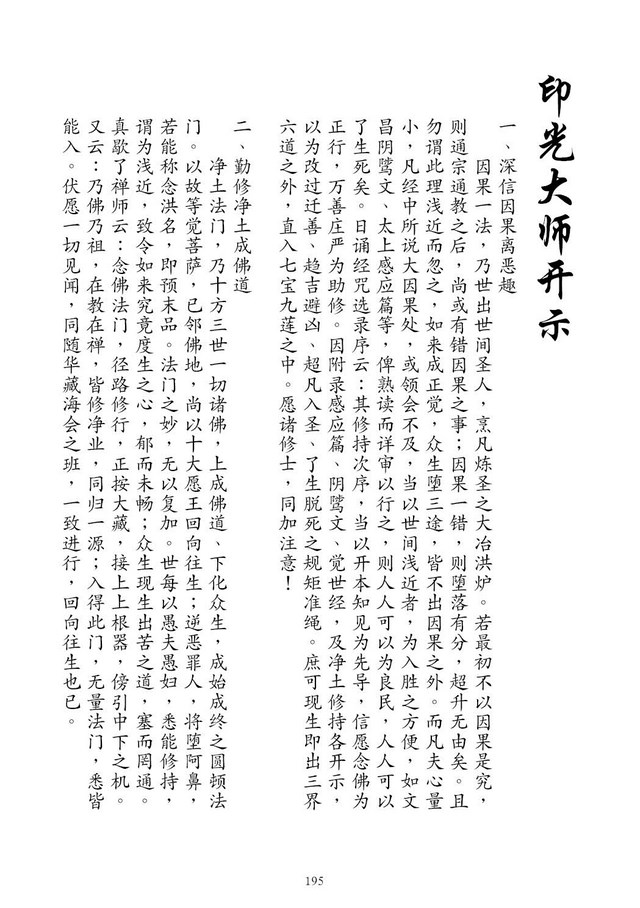 印光大师开示
一、深信因果离恶趣
因果一法，乃世出世间圣人，烹凡炼圣之大冶洪炉。若最初不以因果是究，
则通宗通教之后，尚或有错因果之事；因果一错，则堕落有分，超升无由矣。且
勿谓此理浅近而忽之，如来成正觉，众生堕三途，皆不出因果之外。而凡夫心量
小，凡经中所说大因果处，或领会不及，当以世间浅近者，为入胜之方便，如文
昌阴骘文、太上感应篇等，俾熟读而详审以行之，则人人可以为良民，人人可以
了生死矣。日诵经咒选录序云：其修持次序，当以开本知见为先导，信愿念佛为
正行，万善庄严为助修。因附录感应篇、阴骘文、觉世经，及净土修持各开示，
以为改过迁善、趋吉避凶、超凡入圣、了生脱死之规矩准绳。庶可现生即出三界
六道之外，直入七宝九莲之中。愿诸修士，同加注意！
二、勤修净土成佛道
净土法门，乃十方三世一切诸佛，上成佛道、下化众生，成始成终之圆顿法
门。以故等觉菩萨，已邻佛地，尚以十大愿王回向往生；逆恶罪人，将堕阿鼻，
若能称念洪名，即预末品。法门之妙，无以复加。世每以愚夫愚妇，悉能修持，
谓为浅近，致令如来究竟度生之心，郁而未畅；众生现生出苦之道，塞而罔通。
真歇了禅师云：念佛法门，径路修行，正按大藏，接上上根器，傍引中下之机。
又云：乃佛乃祖，在教在禅，皆修净业，同归一源；入得此门，无量法门，悉皆
能入。伏愿一切见闻，同随华藏海会之班，一致进行，回向往生也已。
195